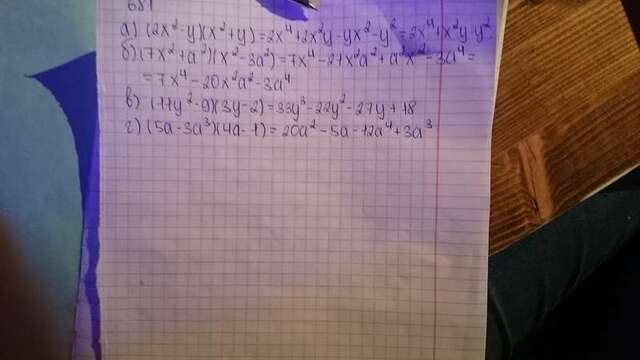 681
а) (2x²-y)(x²+y)=2x⁴+2x²y-yx²-y²=2x⁴+x²y-y²
б) (7x²+a²)(x²-3a²)=7x⁴-21x²a²+a²x²-3a⁴=
=7x⁴-20x²a²-3a⁴
в) (11y²-9)(3y-2)=33y³-22y²-27y+18
г) (5a-3a³)(4a-1)=20a²-5a-12a⁴+3a³